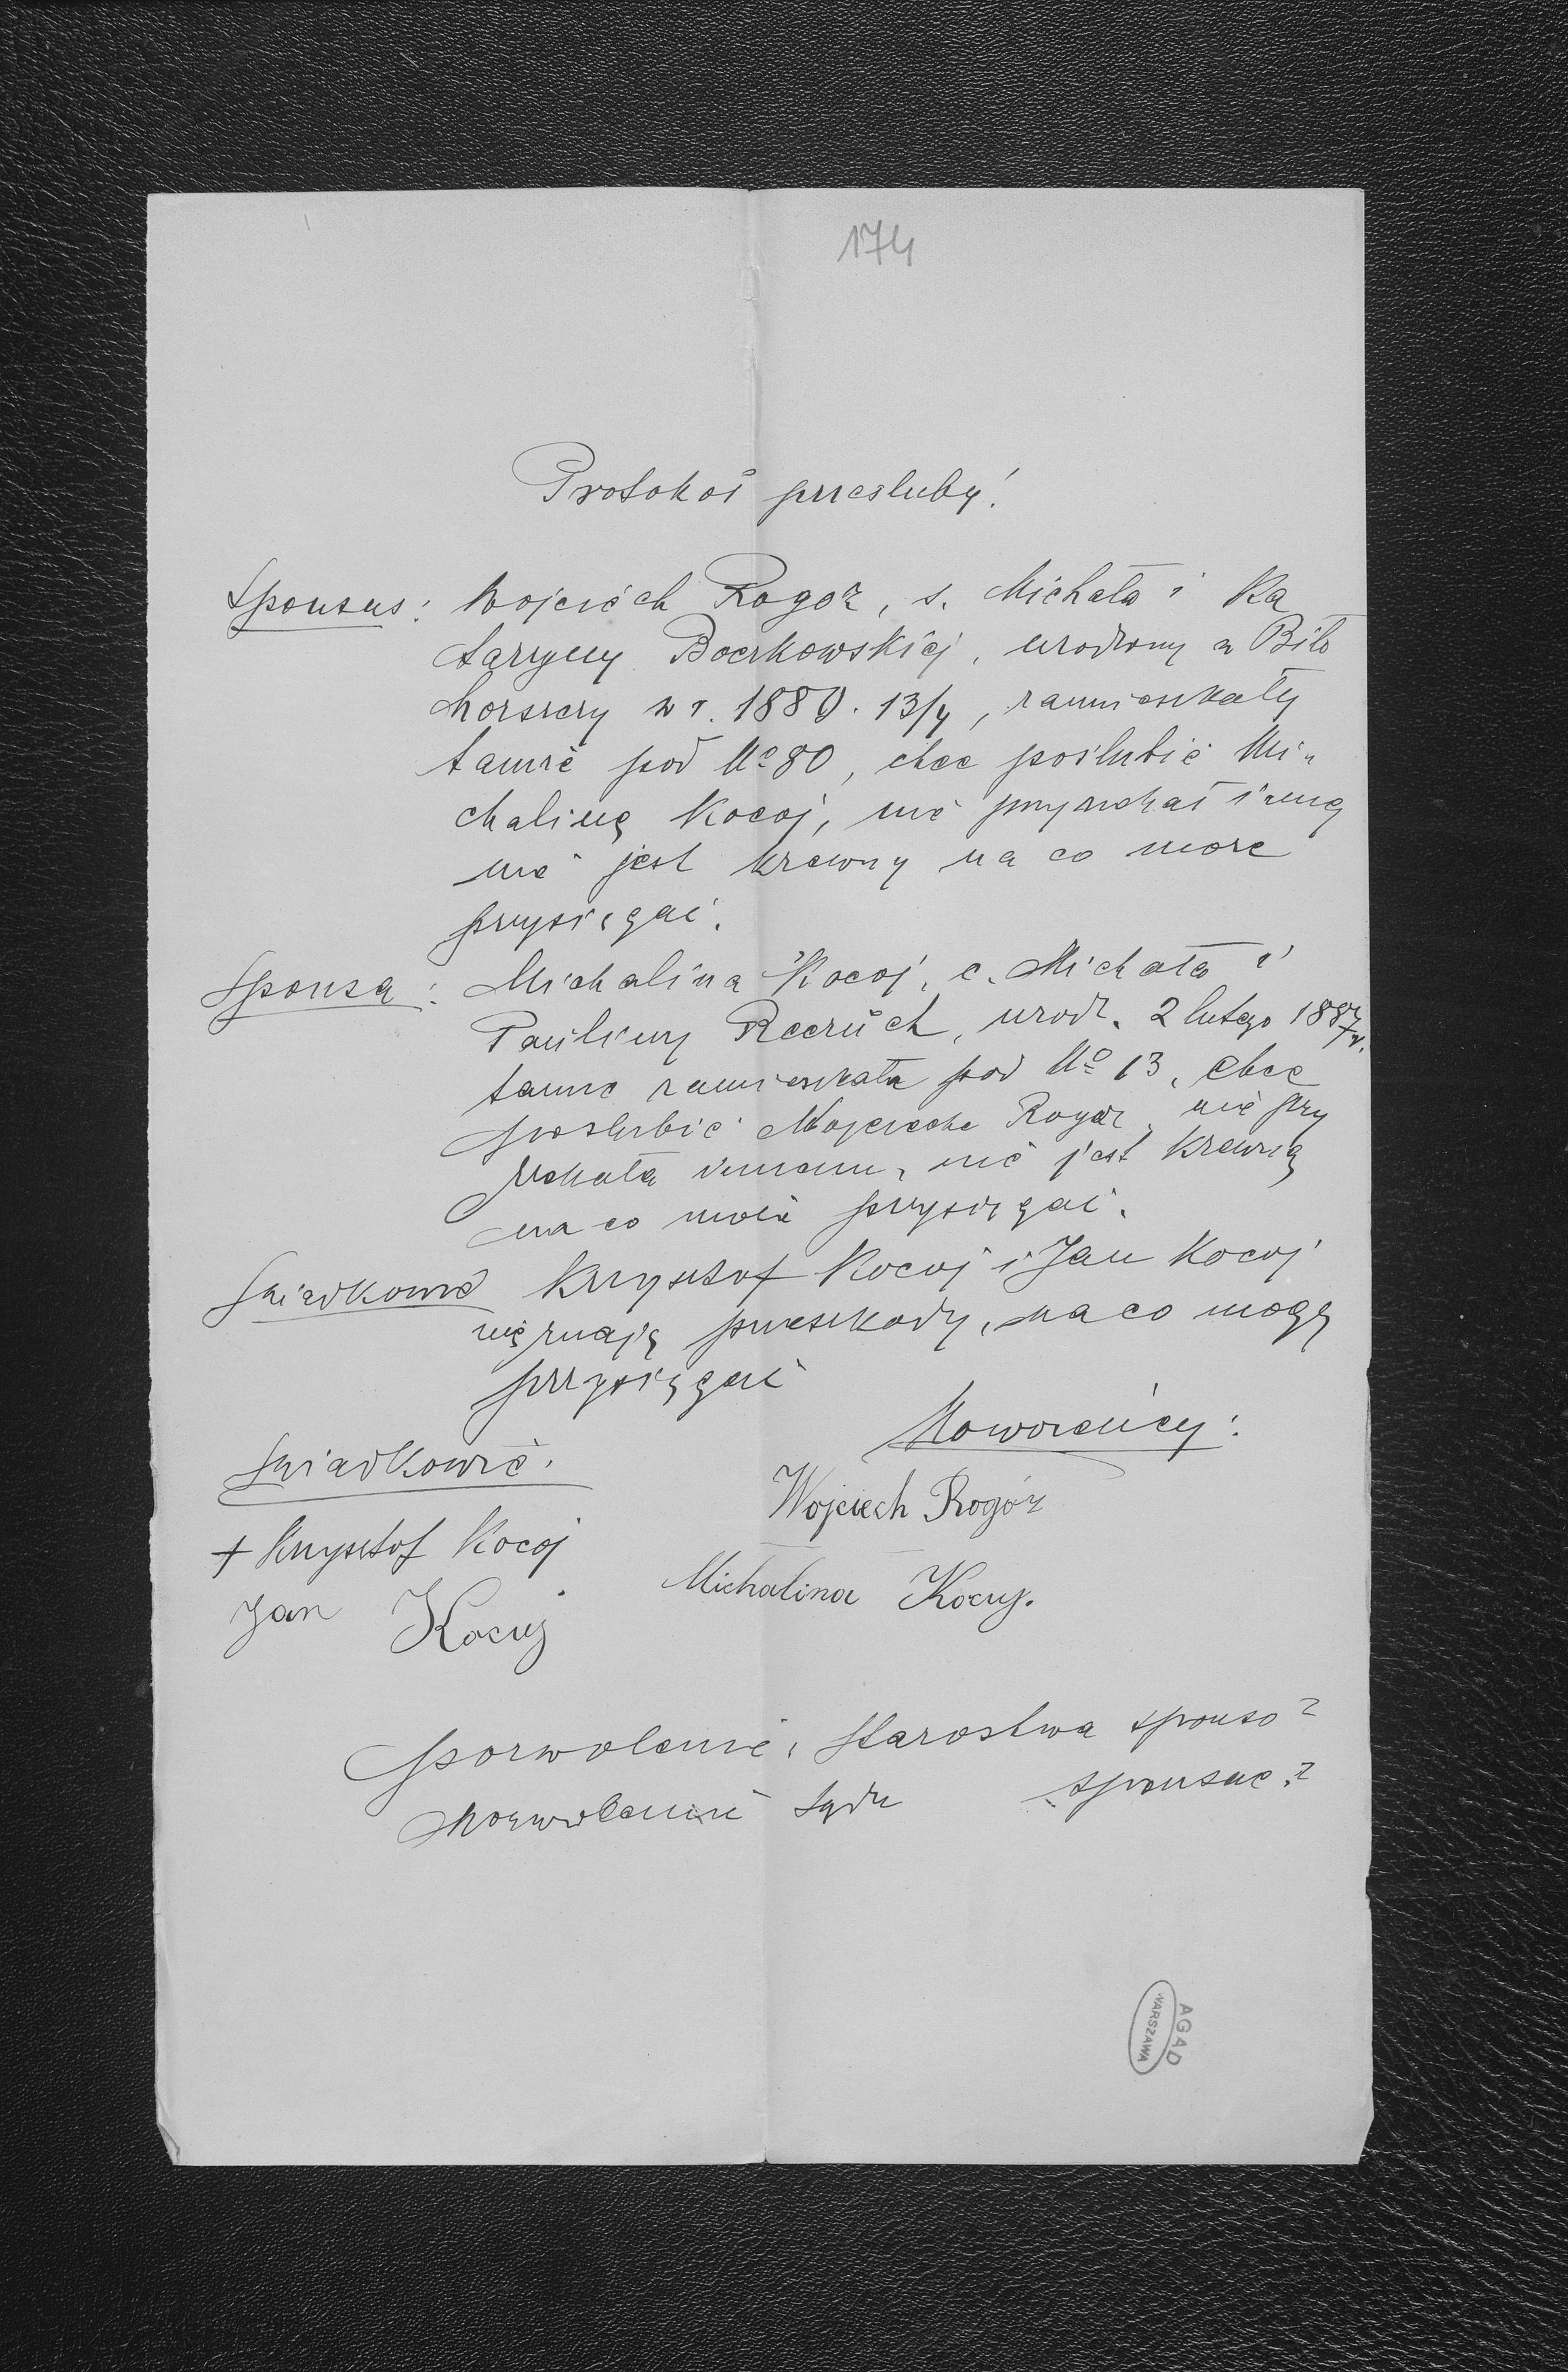 174
Protokół przesłuby!
Sponsus: Wojciech Rogoz, s. Michała i Ka
tarzyny Boczkowskiej, urodzony w Biło
horszczy w r. 1880. 13/4, zamieszkały
tamże pod No 80, chce poślubić Mi-
chalinę Kocój, nie przyrzekał innej
nie jest krewny na co może
przysięgać.
Sponsa: Michalina Kocój, c. Michała i
Pauliny urodz. 2 lutego 1887 r.
tamże zamieszkała pod No 13, chce
poślubić Wojciecha Rogoz, nie przy
rzekała innemu, nie jest krewną
na co może przysięgać.
Świadkowie Krzysztof Kocój i Jan Kocój
nie znają przeszkody, na co mogą
przysięgać
Nowożeńcy:
Świadkowie.
Wojciech Rogóz
+ Krzysztof Kocój
Michalina Kocuj.
Jan Kocuj
pozwolenie, Starostwa sponso?
pozwolenie Sądu sponsae?
AGAD
WARSZAWA